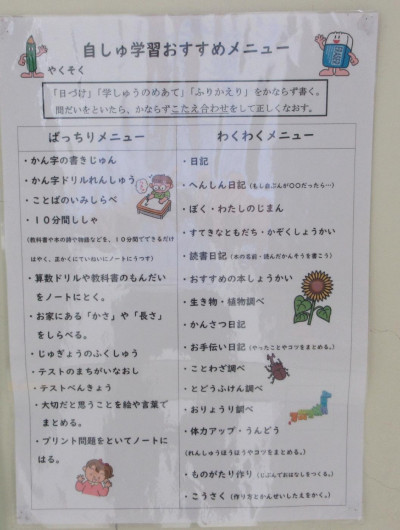 自しゅ学習おすすめメニュー
やくそく
「日づけ」「学しゅうのめあて」「ふりかえり」をかならず書く。
問だいをといたら、かならずこたえ合わせをして正しくなおす。
ばっちりメニュー
・かん字の書きじゅん
・かん字ドリルれんしゅう
・ことばのいみしらべ
・１０分間ししゃ
(教科書や本の詩や物語などを、１０分間でできるだけ
はやく、正かくにていねいにノートにうつす)
・算数ドリルや教科書のもんだい
をノートにとく。
・お家にある「かさ」や「長さ」
をしらべる。
・じゅぎょうのふくしゅう
・テストのまちがいなおし
・テストべんきょう
・大切だと思うことを絵や言葉で
まとめる。
・プリント問題をといてノートに
はる。
わくわくメニュー
・日記
・へんしん日記(もし自ぶんが〇〇だったら…)
・ぼく・わたしのじまん
・すてきなともだち・かぞくしょうかい
・読書日記(本の名前・読んだかんそうを書こう)
・おすすめの本しょうかい
・生き物・植物調べ
・かんさつ日記
・お手伝い日記(やったことやコツをまとめる。)
・ことわざ調べ
・とどうふけん調べ
・おりょうり調べ
・体力アップ・うんどう
(れんしゅうほうほうやコツをまとめる。)
・ものがたり作り(じぶんでおはなしをつくる。)
・こうさく(作り方とかんせいしたえをかく。)